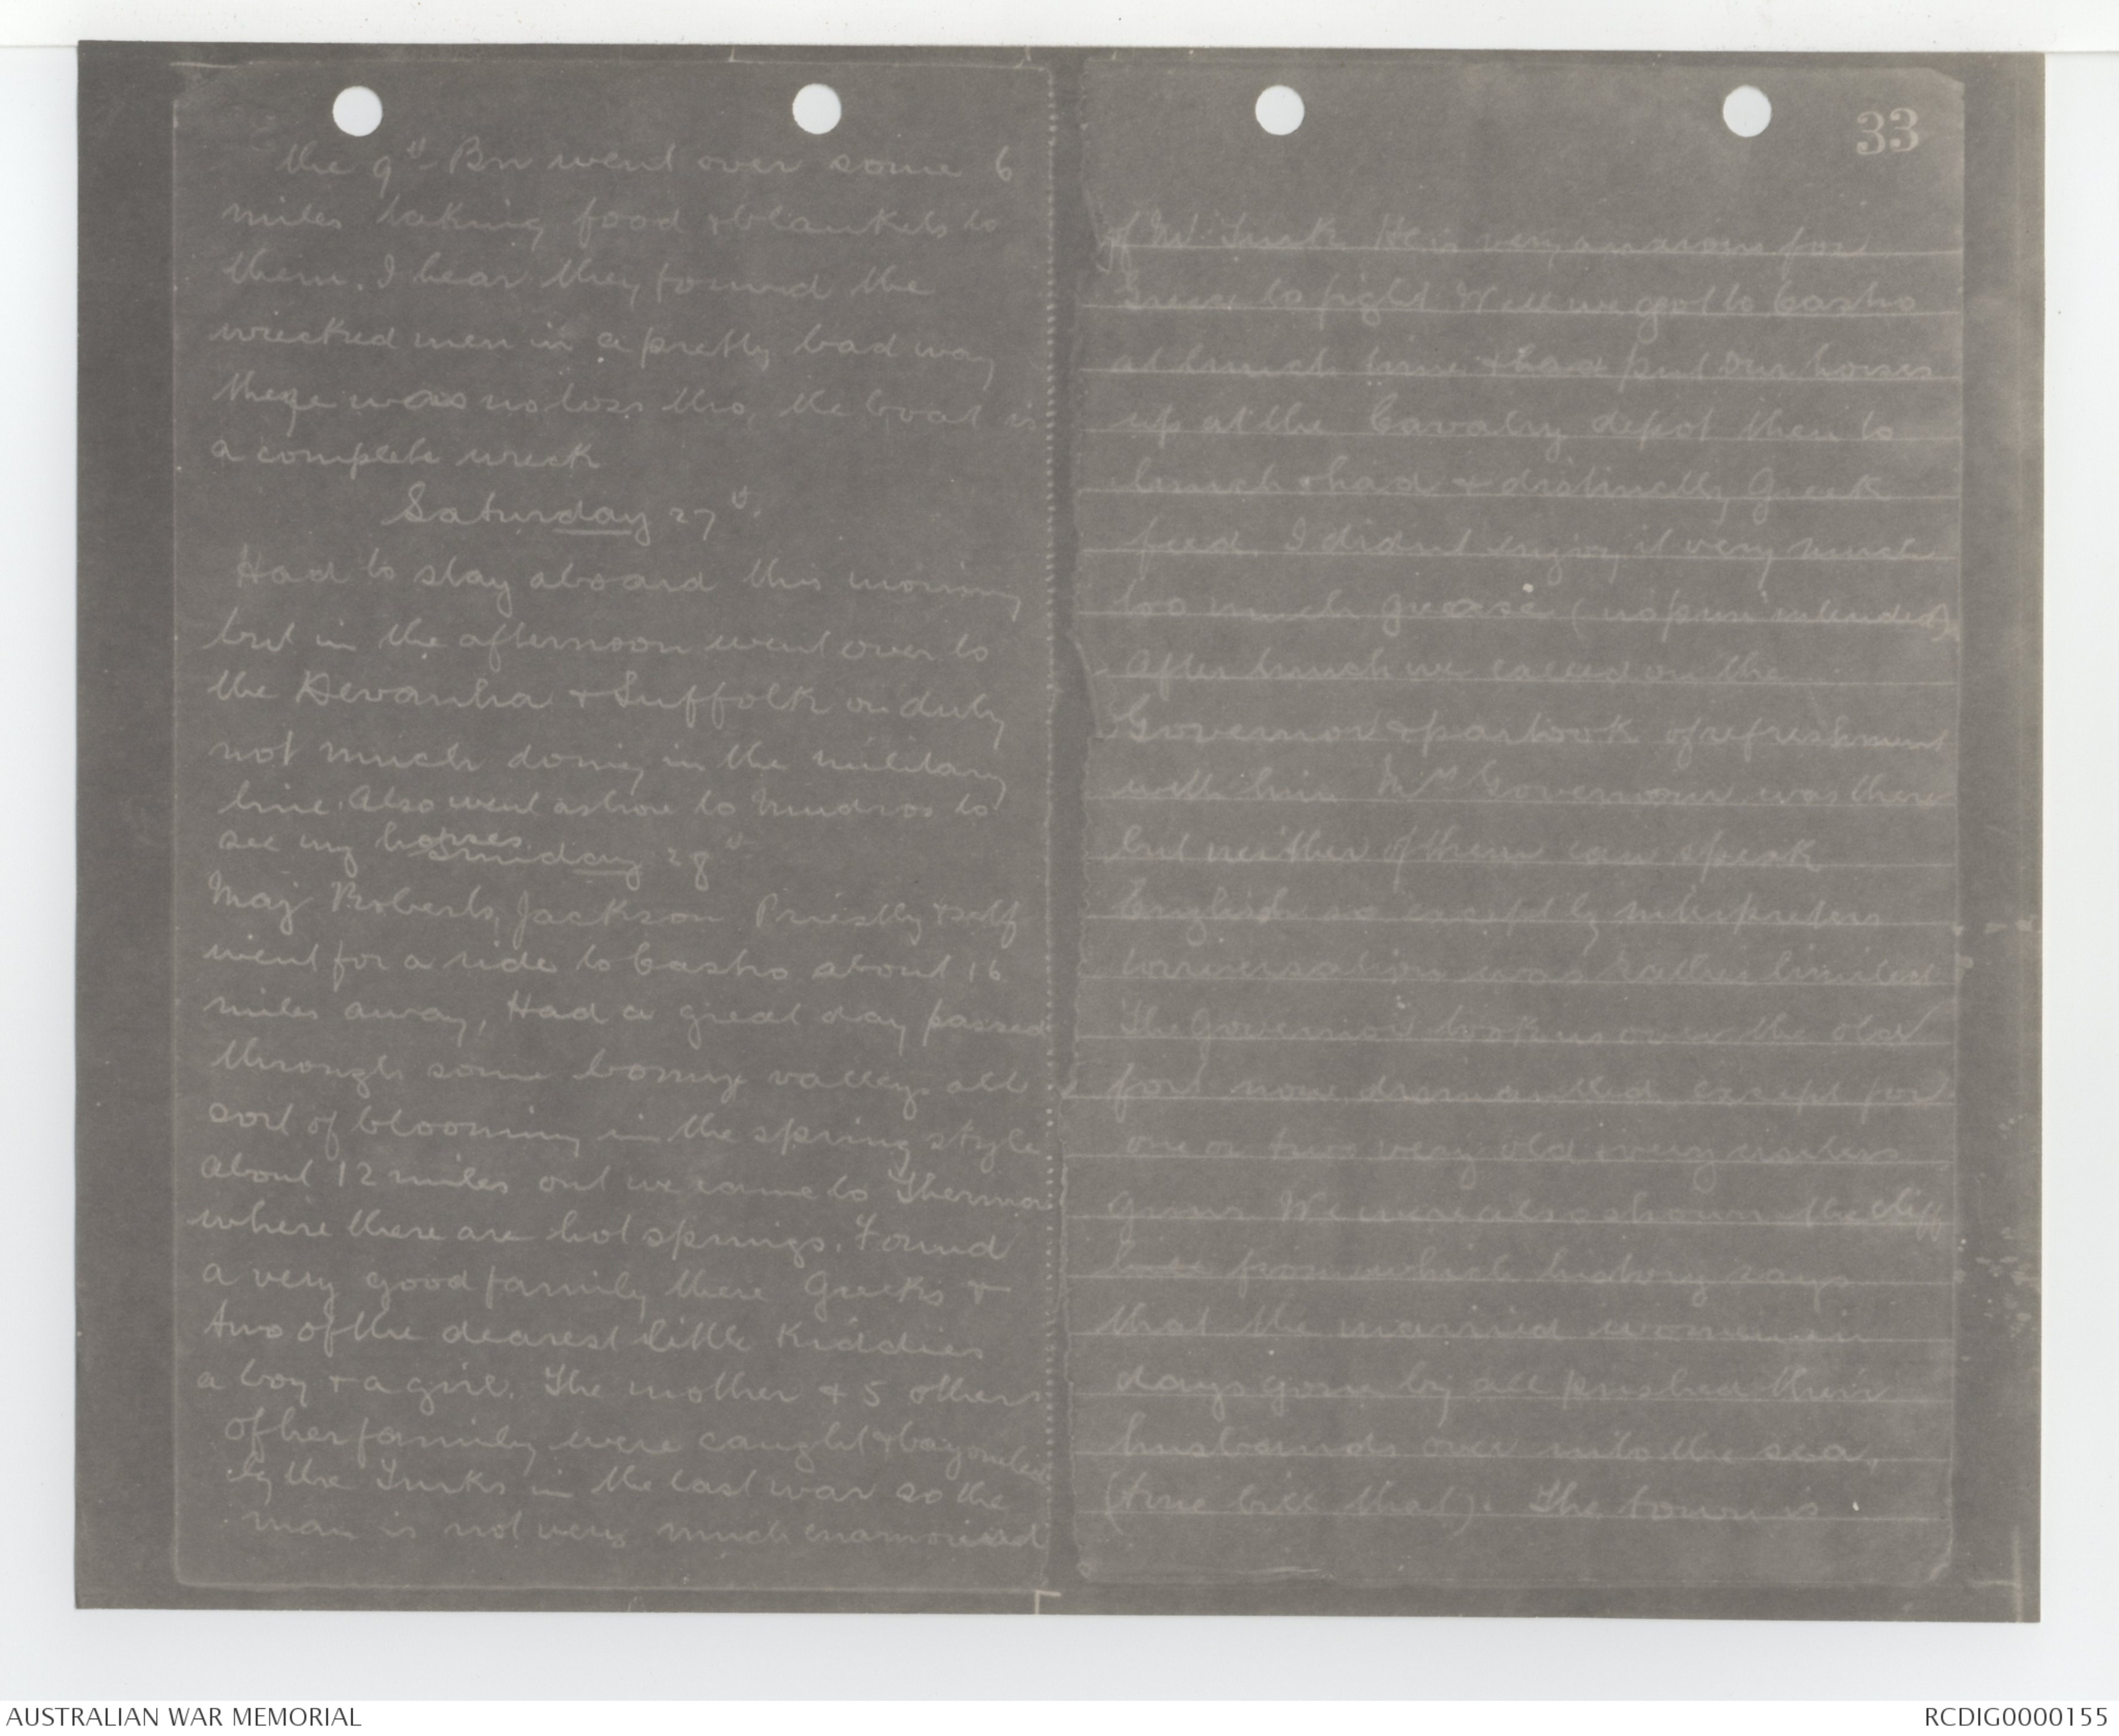 the 9th Bn went over some 6
miles taking food & blankets to
them. I hear they found the
wrecked men in a pretty bad way
there was no loss tho, the boat is
a complete wreck
Saturday 27th.
Had to stay aboard this morning
but in the afternoon went over to
the Devanha & Suffolk on duty
not much doing in the military
line. Also went ashore to Mudros to
see my horses
Sunday 28th
Maj Roberts, Jackson Priestly & self
went for a ride to Castro about 16
miles away, Had a great day passed
through some bonny valleys all
sort of blooming in the spring style
about 12 miles out we came to Therma
where there are hot springs. Found
a very good family there Greeks &
two of the dearest little Kiddies
a boy & a girl. The mother & 5 others
of her family were caught & bayoneted
by the Turks in the last war so the
man is not very much enamoured
33
of Mr Turk. He is very anxious for
Greece to fight Well we got to Castro
at lunch time & had put our horses
up at the Cavalry depot then to
lunch & had a distinctly Greek
feed. I didnt enjoy it very much
too much grease (no pun intended)
After lunch we called on the
Governor & partook of refreshment
with him Mrs Governor was there
but neither of them can speak
English so except by interpreters
conversation was rather limited
The Governor took us over the old
fort now dismantled except for
one or two very old & very useless
guns We were also shown the cliff
from which history says
that the married women in
days gone by all pushed their
husbands over into the sea,
(true bill that). The town is
AUSTRALIAN WAR MEMORIAL
RCDIG0000155